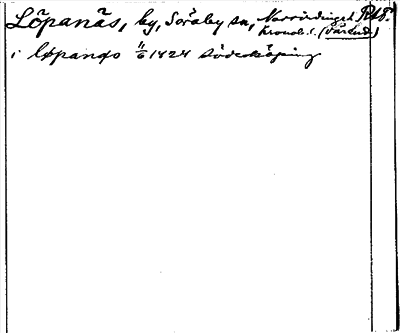 Löpanäs, by, Soraby sn, Norrvidinge hd PRF.
Kronob. l. (Värend)
i løpanæs 11/6 1424 Söderköping